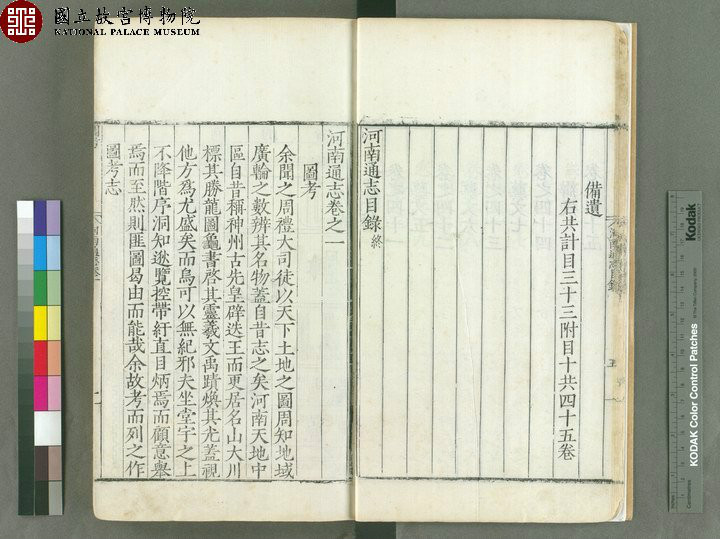 國立故宮博物院
NATIONAL PALACE MUSEUM
備遺
右共計目三十三附目十共四十五卷
河南通志目錄終
河南通志卷之一
圖考
余聞之周禮大司徒以天下土地之圖周知地域
廣輪之數辨其名物蓋自昔志之矣河南天地中
區自昔稱神州古先皇辟迭王而更居名山大川
標其勝龍圖龜書啓其靈羲文禹蹟煥其尤蓋視
他方為尤盛矣而烏可以無紀邪夫坐堂宇之上
不降階序洞知遐覽控帶紆直目炳焉而顧意舉
焉而至然則匪圖曷由而能哉余故考而列之作
圖考志
KODAK Color Control Patches